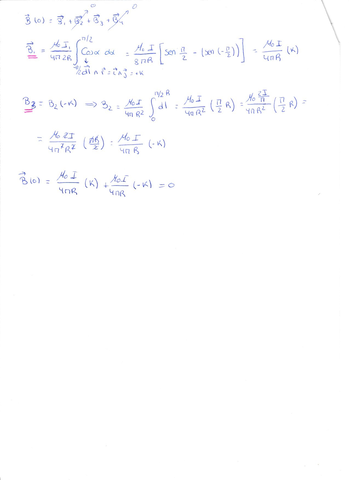 B⃗(0) = B⃗₁ + B⃗₂ + B⃗₃ + B⃗₄
B⃗₁ = μ₀ I₁ / 4π2R ∫_{-π/2}^{π/2} Cosα dα = μ₀ I / 8πR [sen π/2 - (sen(-π/2))] = μ₀ I / 4πR (K)
B₃ = B₂ (-K) ⇒ B₂ = μ₀ I / 4πR² ∫₀^{π/2 R} dl = μ₀ I / 4πR² (π/2 R) = μ₀ 2I/π / 4πR² (π/2 R) =
= μ₀ 2I / 4π²R² (πR/2) = μ₀ I / 4πR (-K)
B⃗(0) = μ₀ I / 4πR (K) + μ₀ I / 4πR (-K) = 0